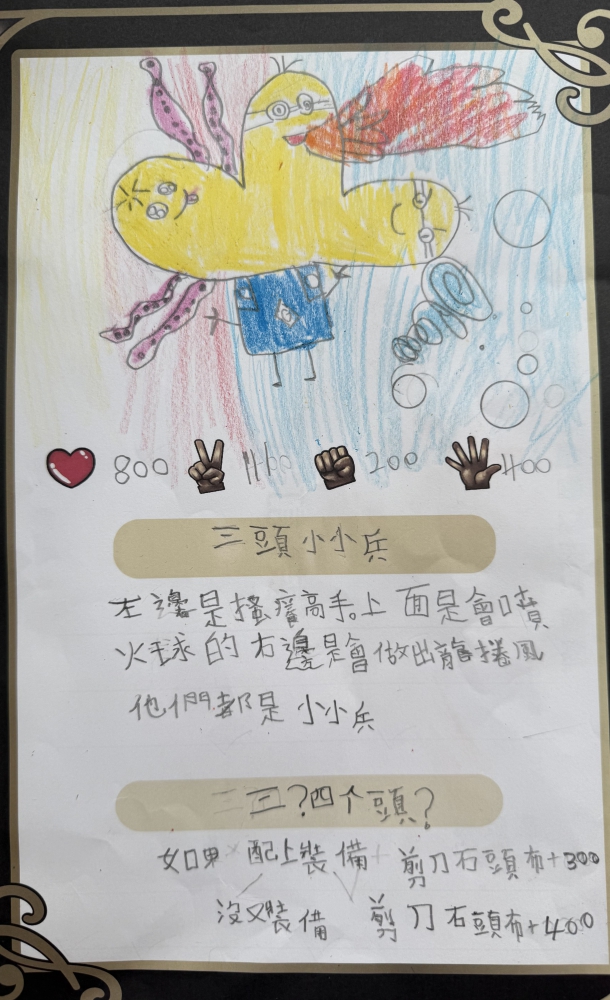 800 1100 200 400
三頭小小兵
左邊是搔癢高手。上面是會噴
火球的右邊是會做出龍捲風
他們都是小小兵
三?四个頭?
如果 配上裝備 剪刀石頭布+300
沒又裝備 剪刀石頭布+400